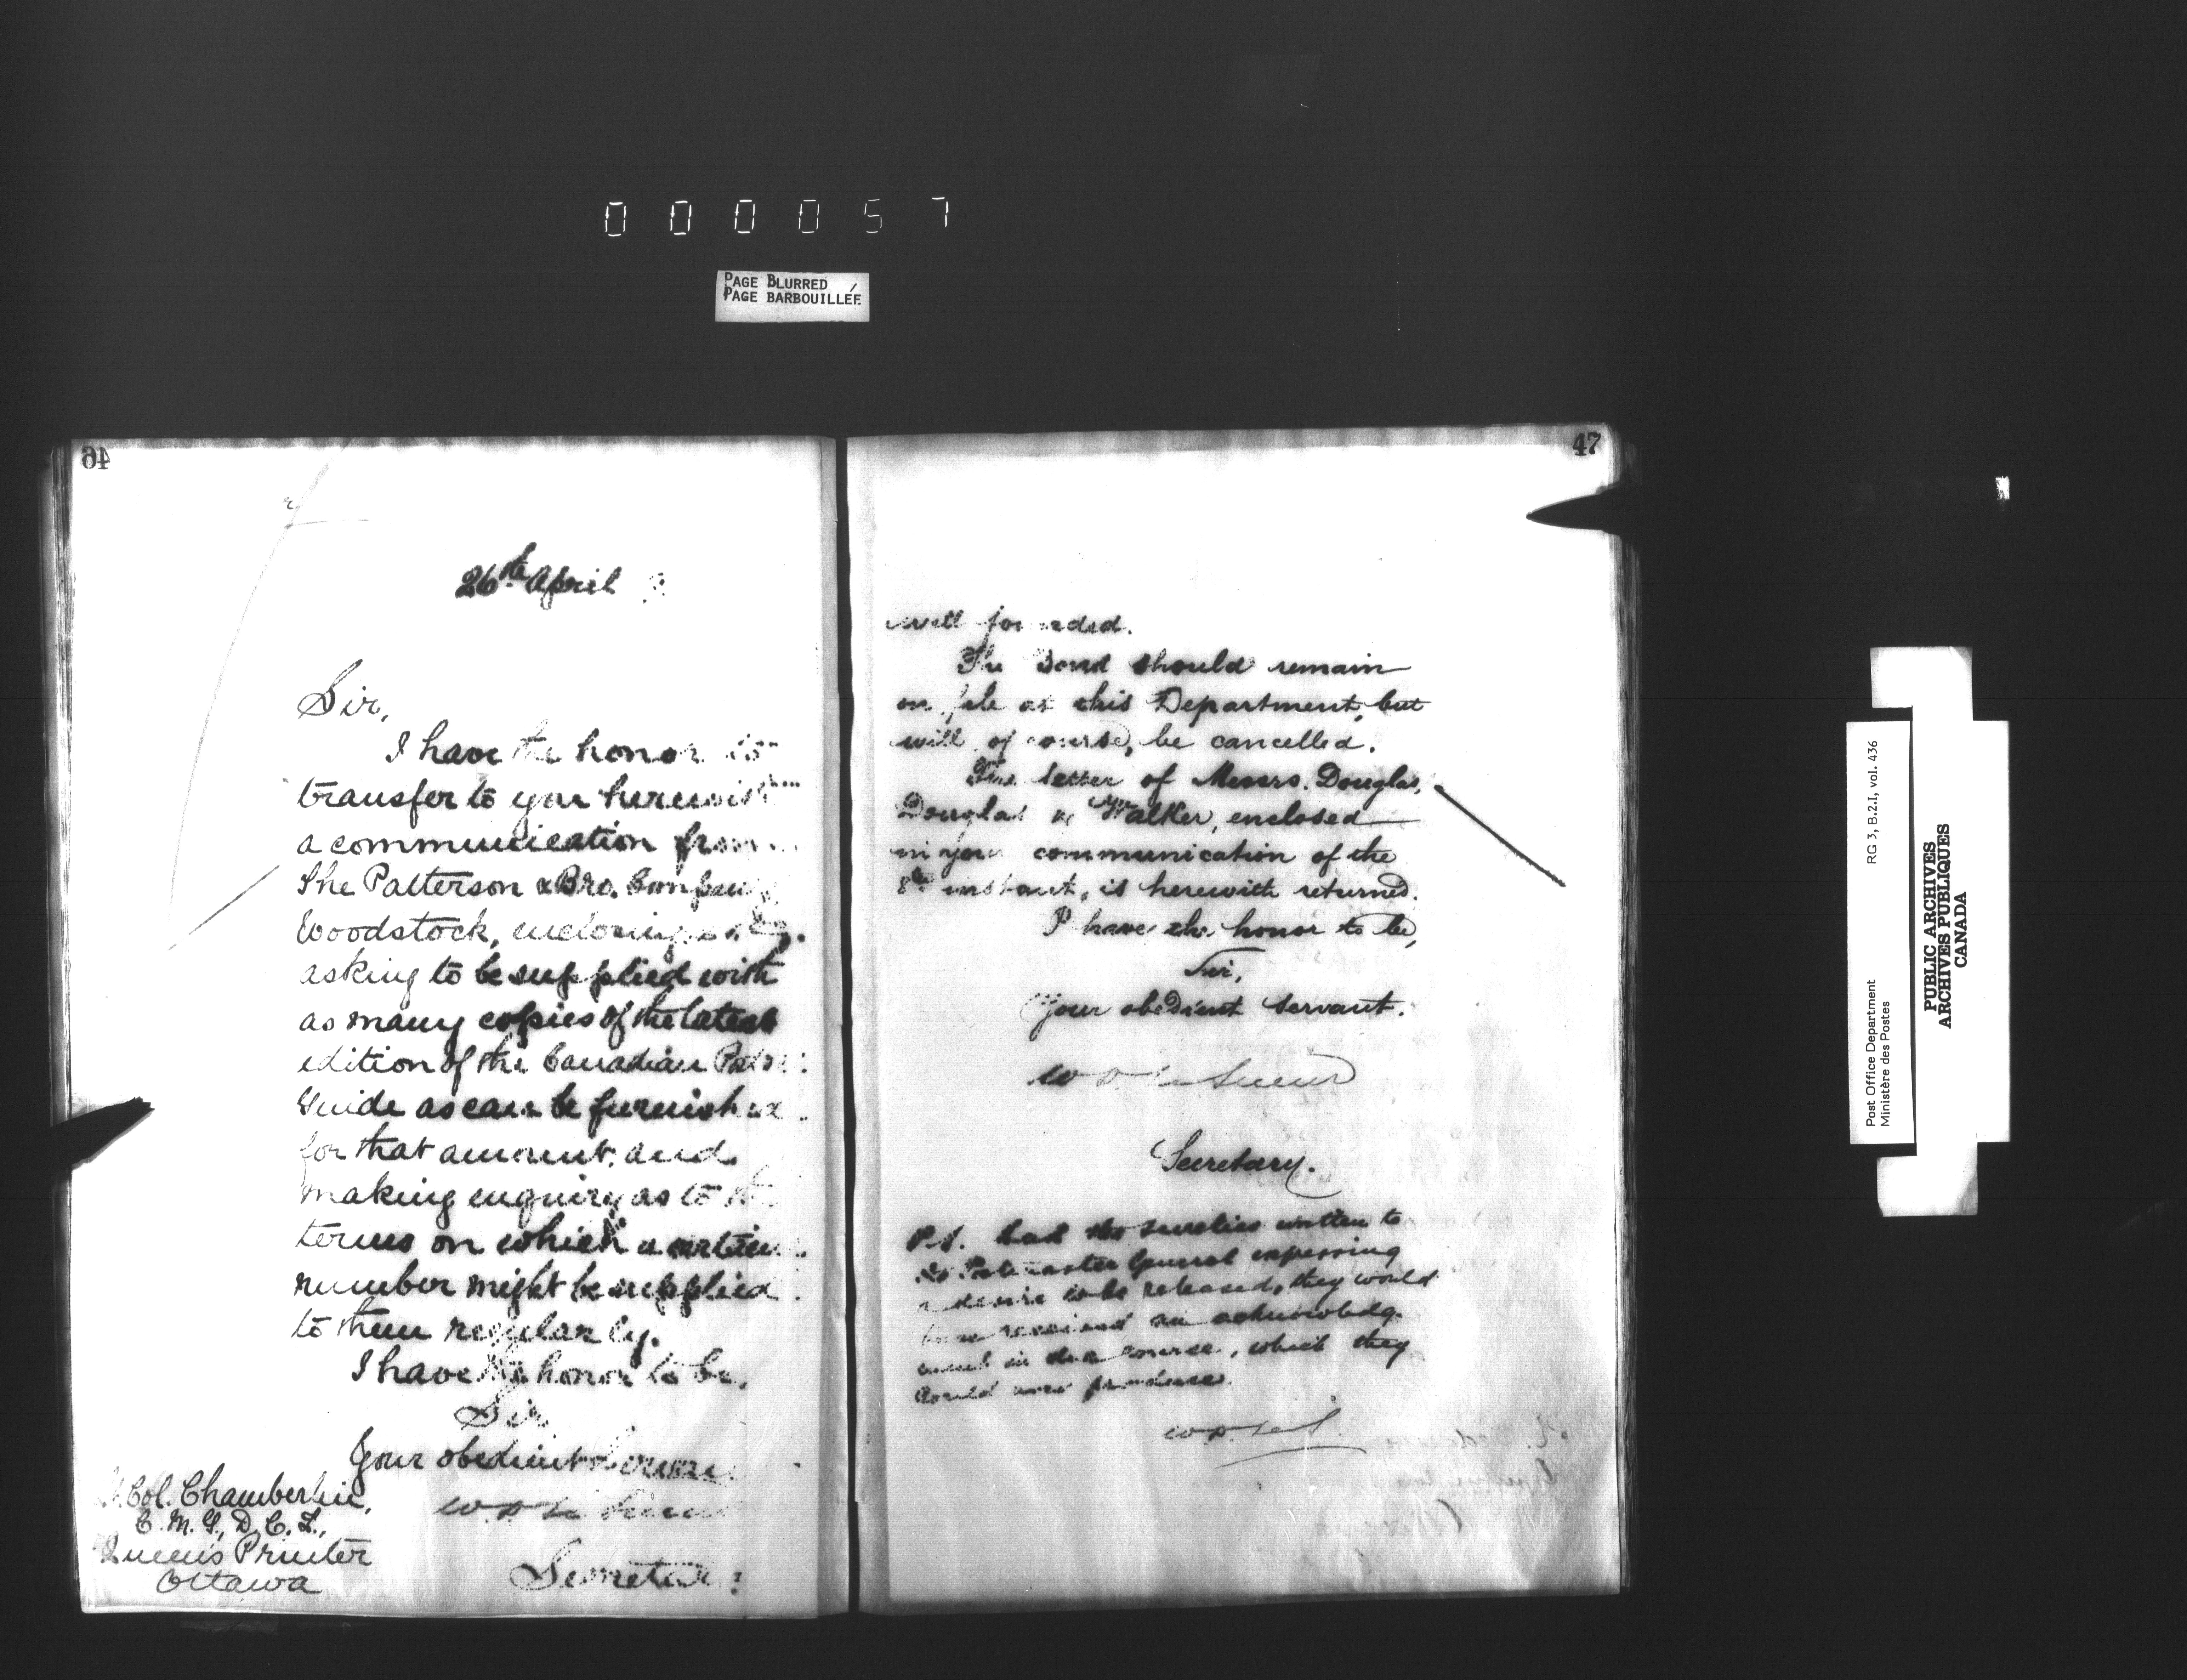 000057
PAGE BLURRED
PAGE BARBOUILLÉE
46
26th April
Sir,
I have the honor to
transfer to you herewith
a communication from
The Patterson & Bro. Company
Woodstock, enclosing
asking to be supplied with
as many copies of the latest
edition of the Canadian Postal
Guide as can be furnished
for that amount, and
making enquiry as to the
terms on which a certain
number might be supplied
to them regularly.
I have the honor to be,
Sir
Your obedient Servant
W D LeSueur
Secretary
Col. Chamberlin,
C. M. G., D. C. L.,
Queen's Printer
Ottawa
47
well founded.
The Bond should remain
on file at this Department, but
will, of course, be cancelled.
The letter of Messrs. Douglas,
Douglas & Walker, enclosed
in your communication of the
8th instant, is herewith returned.
I have the honor to be,
Sir,
Your obedient servant.
W D LeSueur
Secretary.
P.S. Had the sureties written to
the Postmaster General expressing
a desire to be released, they would
have received an acknowledg-
ment in due course, which they
could now produce.
W.D. LeS.
Post Office Department
Ministère des Postes
RG 3, B.2.I, vol. 436
PUBLIC ARCHIVES
ARCHIVES PUBLIQUES
CANADA